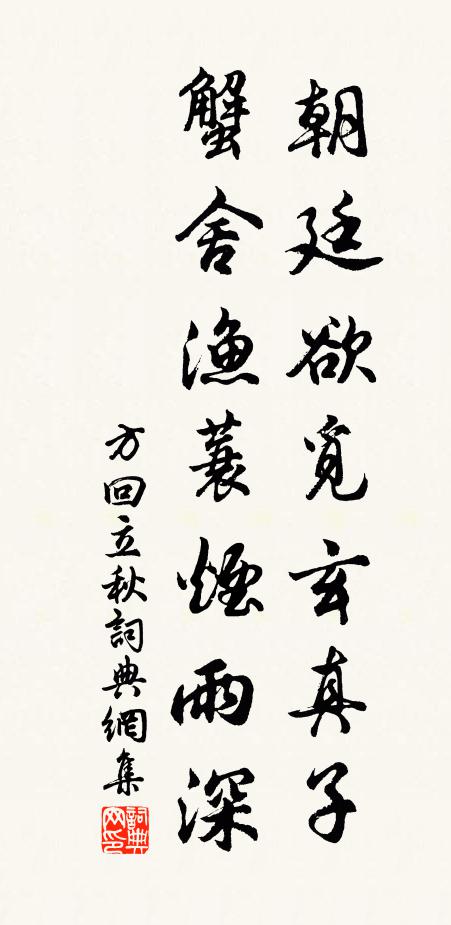 朝廷欲覓玄真子
蟹舍漁蓑煙雨深
方回立秋詞典網集
詞典网印